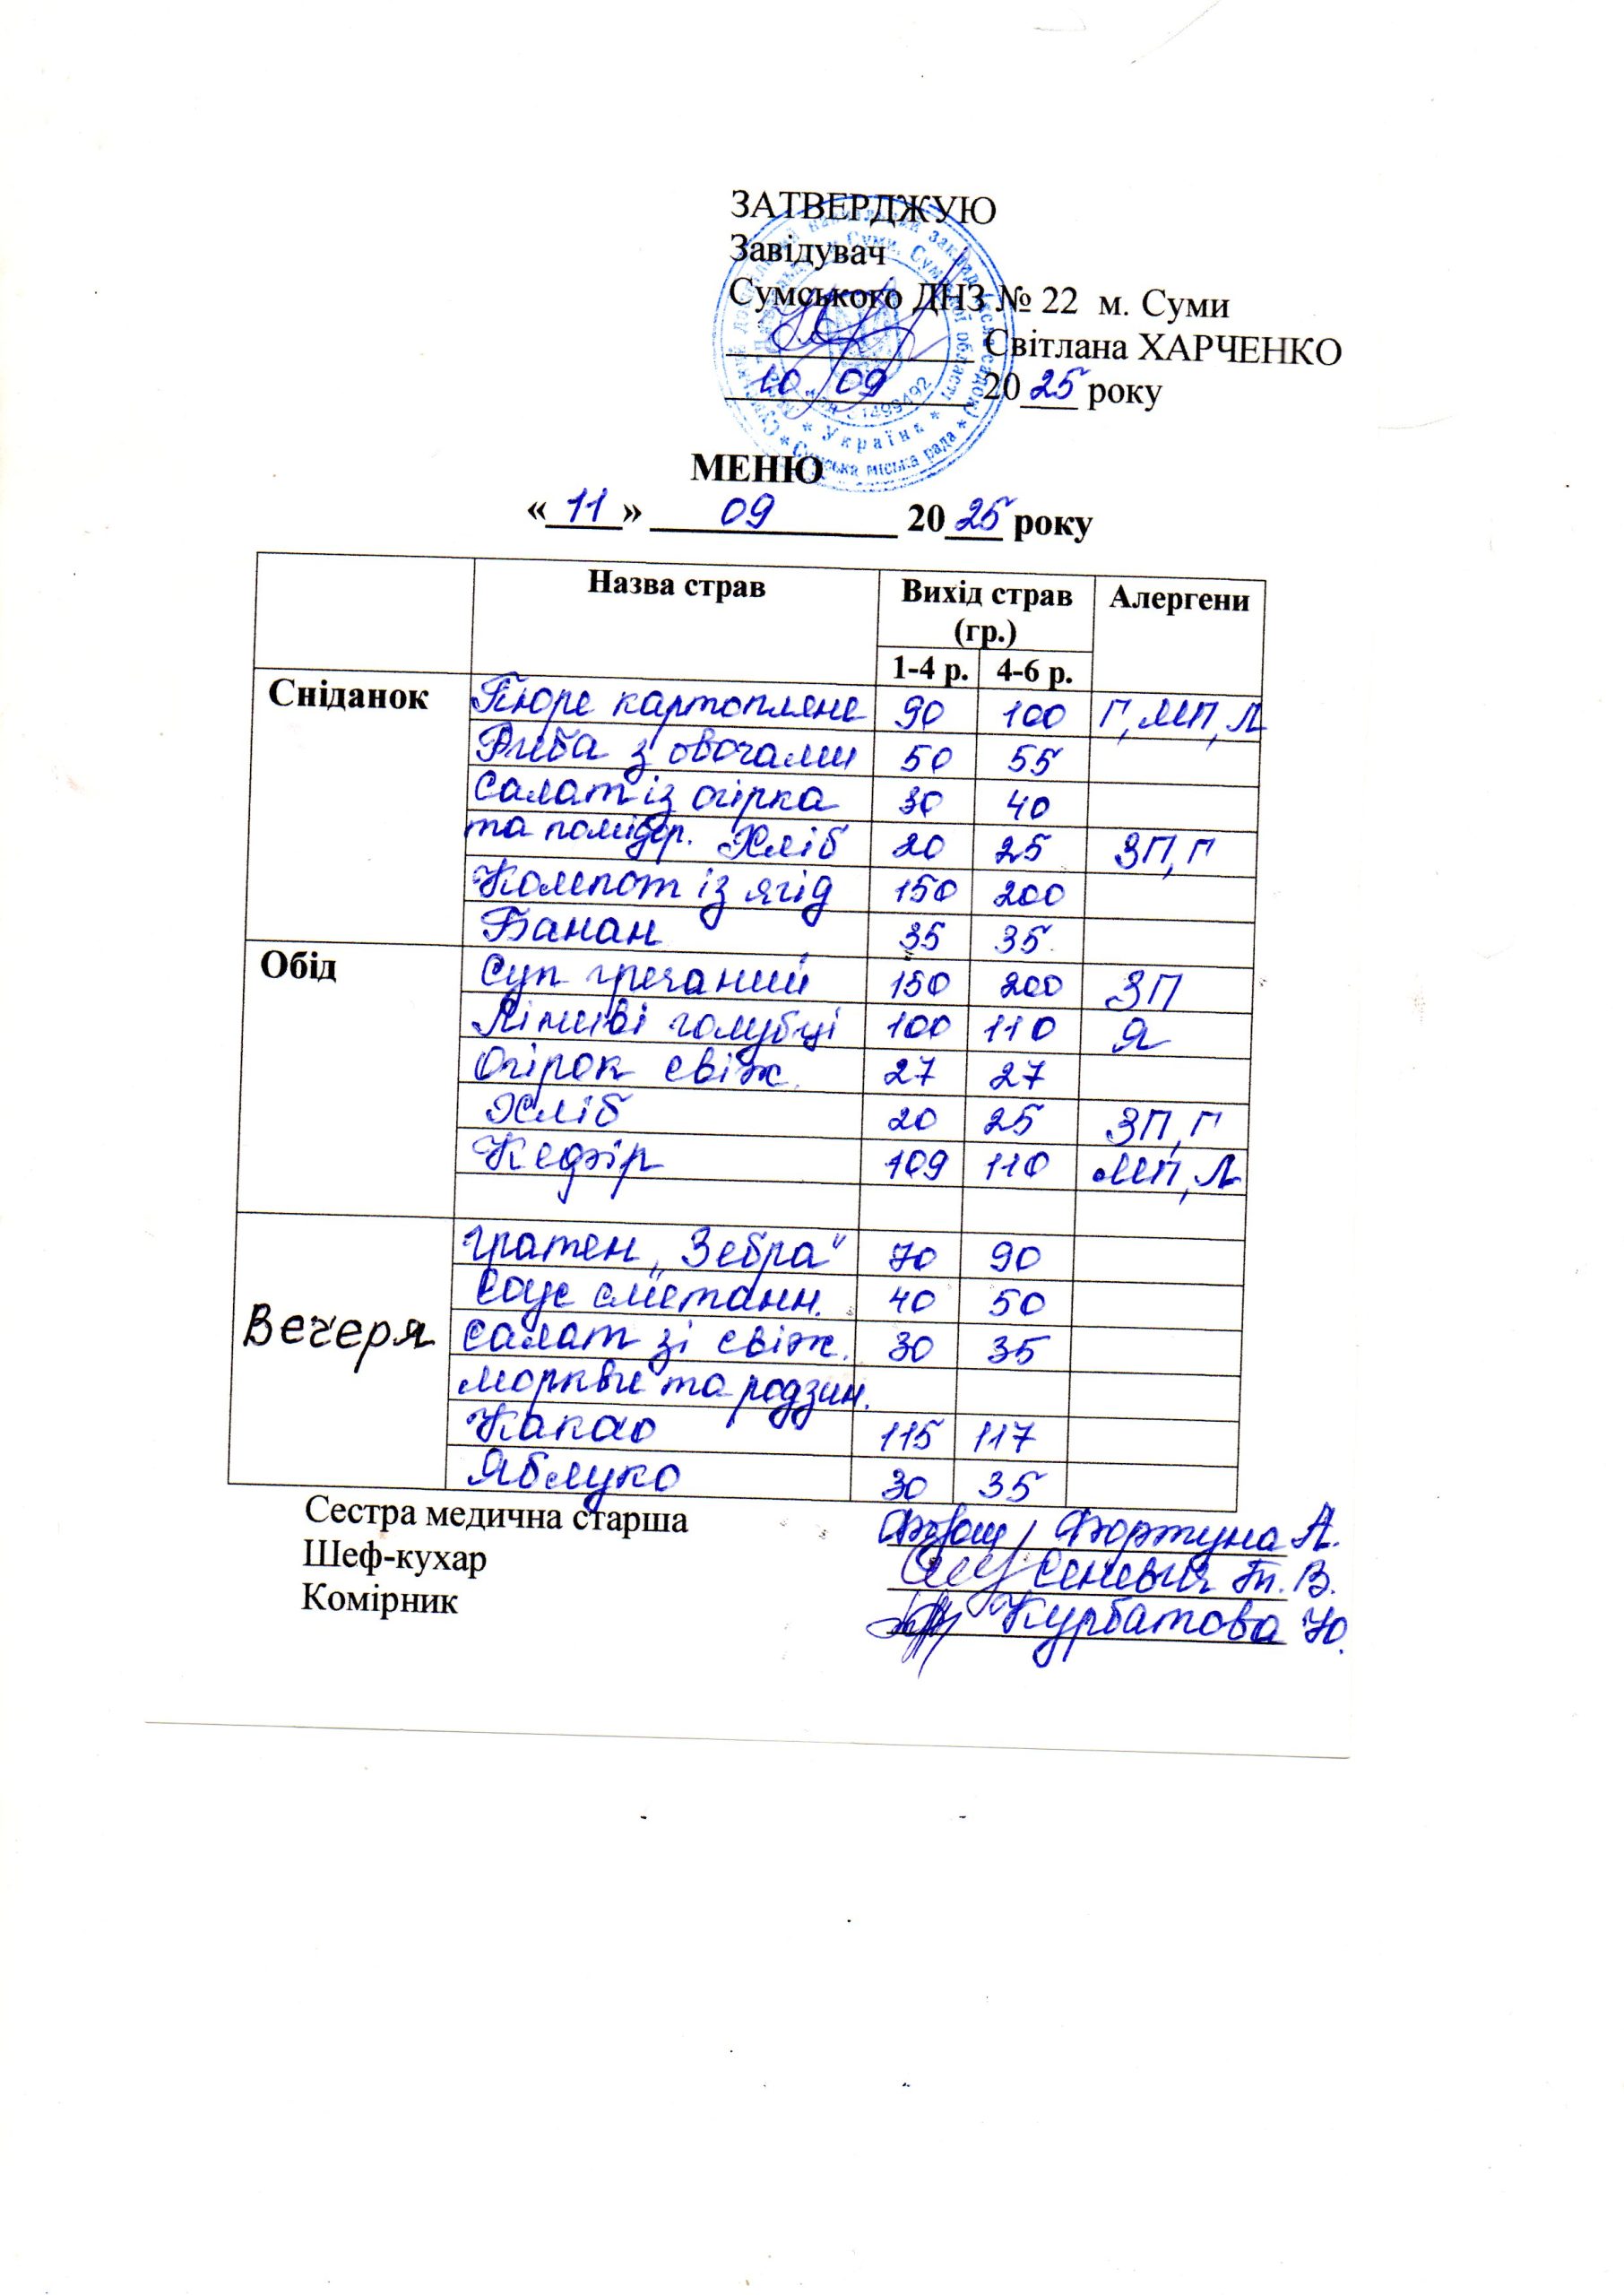 ЗАТВЕРДЖУЮ
Завідувач
Сумського ДНЗ № 22 м. Суми
Світлана ХАРЧЕНКО
10 09 2025 року
МЕНЮ
« 11 » 09 2025 року
Назва страв Вихід страв (гр.) Алергени
1-4 р. 4-6 р.
Сніданок Пюре картопляне 90 100 Г, МП, Л
Риба з овочами 50 55
Салат із огірка 30 40
та помідор. Хліб 20 25 ЗП, Г
Компот із ягід 150 200
Банан 35 35
Обід Суп гречаний 150 200 ЗП
Ліниві голубці 100 110 Я
Огірок свіж. 27 27
Хліб 20 25 ЗП, Г
Кефір 109 110 МП, Л
Гратен „Зебра" 70 90
Соус сметанн. 40 50
Вечеря Салат зі свіж. 30 35
моркви та родзин.
Какао 115 117
Яблуко 30 35
Сестра медична старша Фортуна А.
Шеф-кухар Сеневич Т. В.
Комірник Курбатова Ю.
* Україна *
Сумська міська рада *